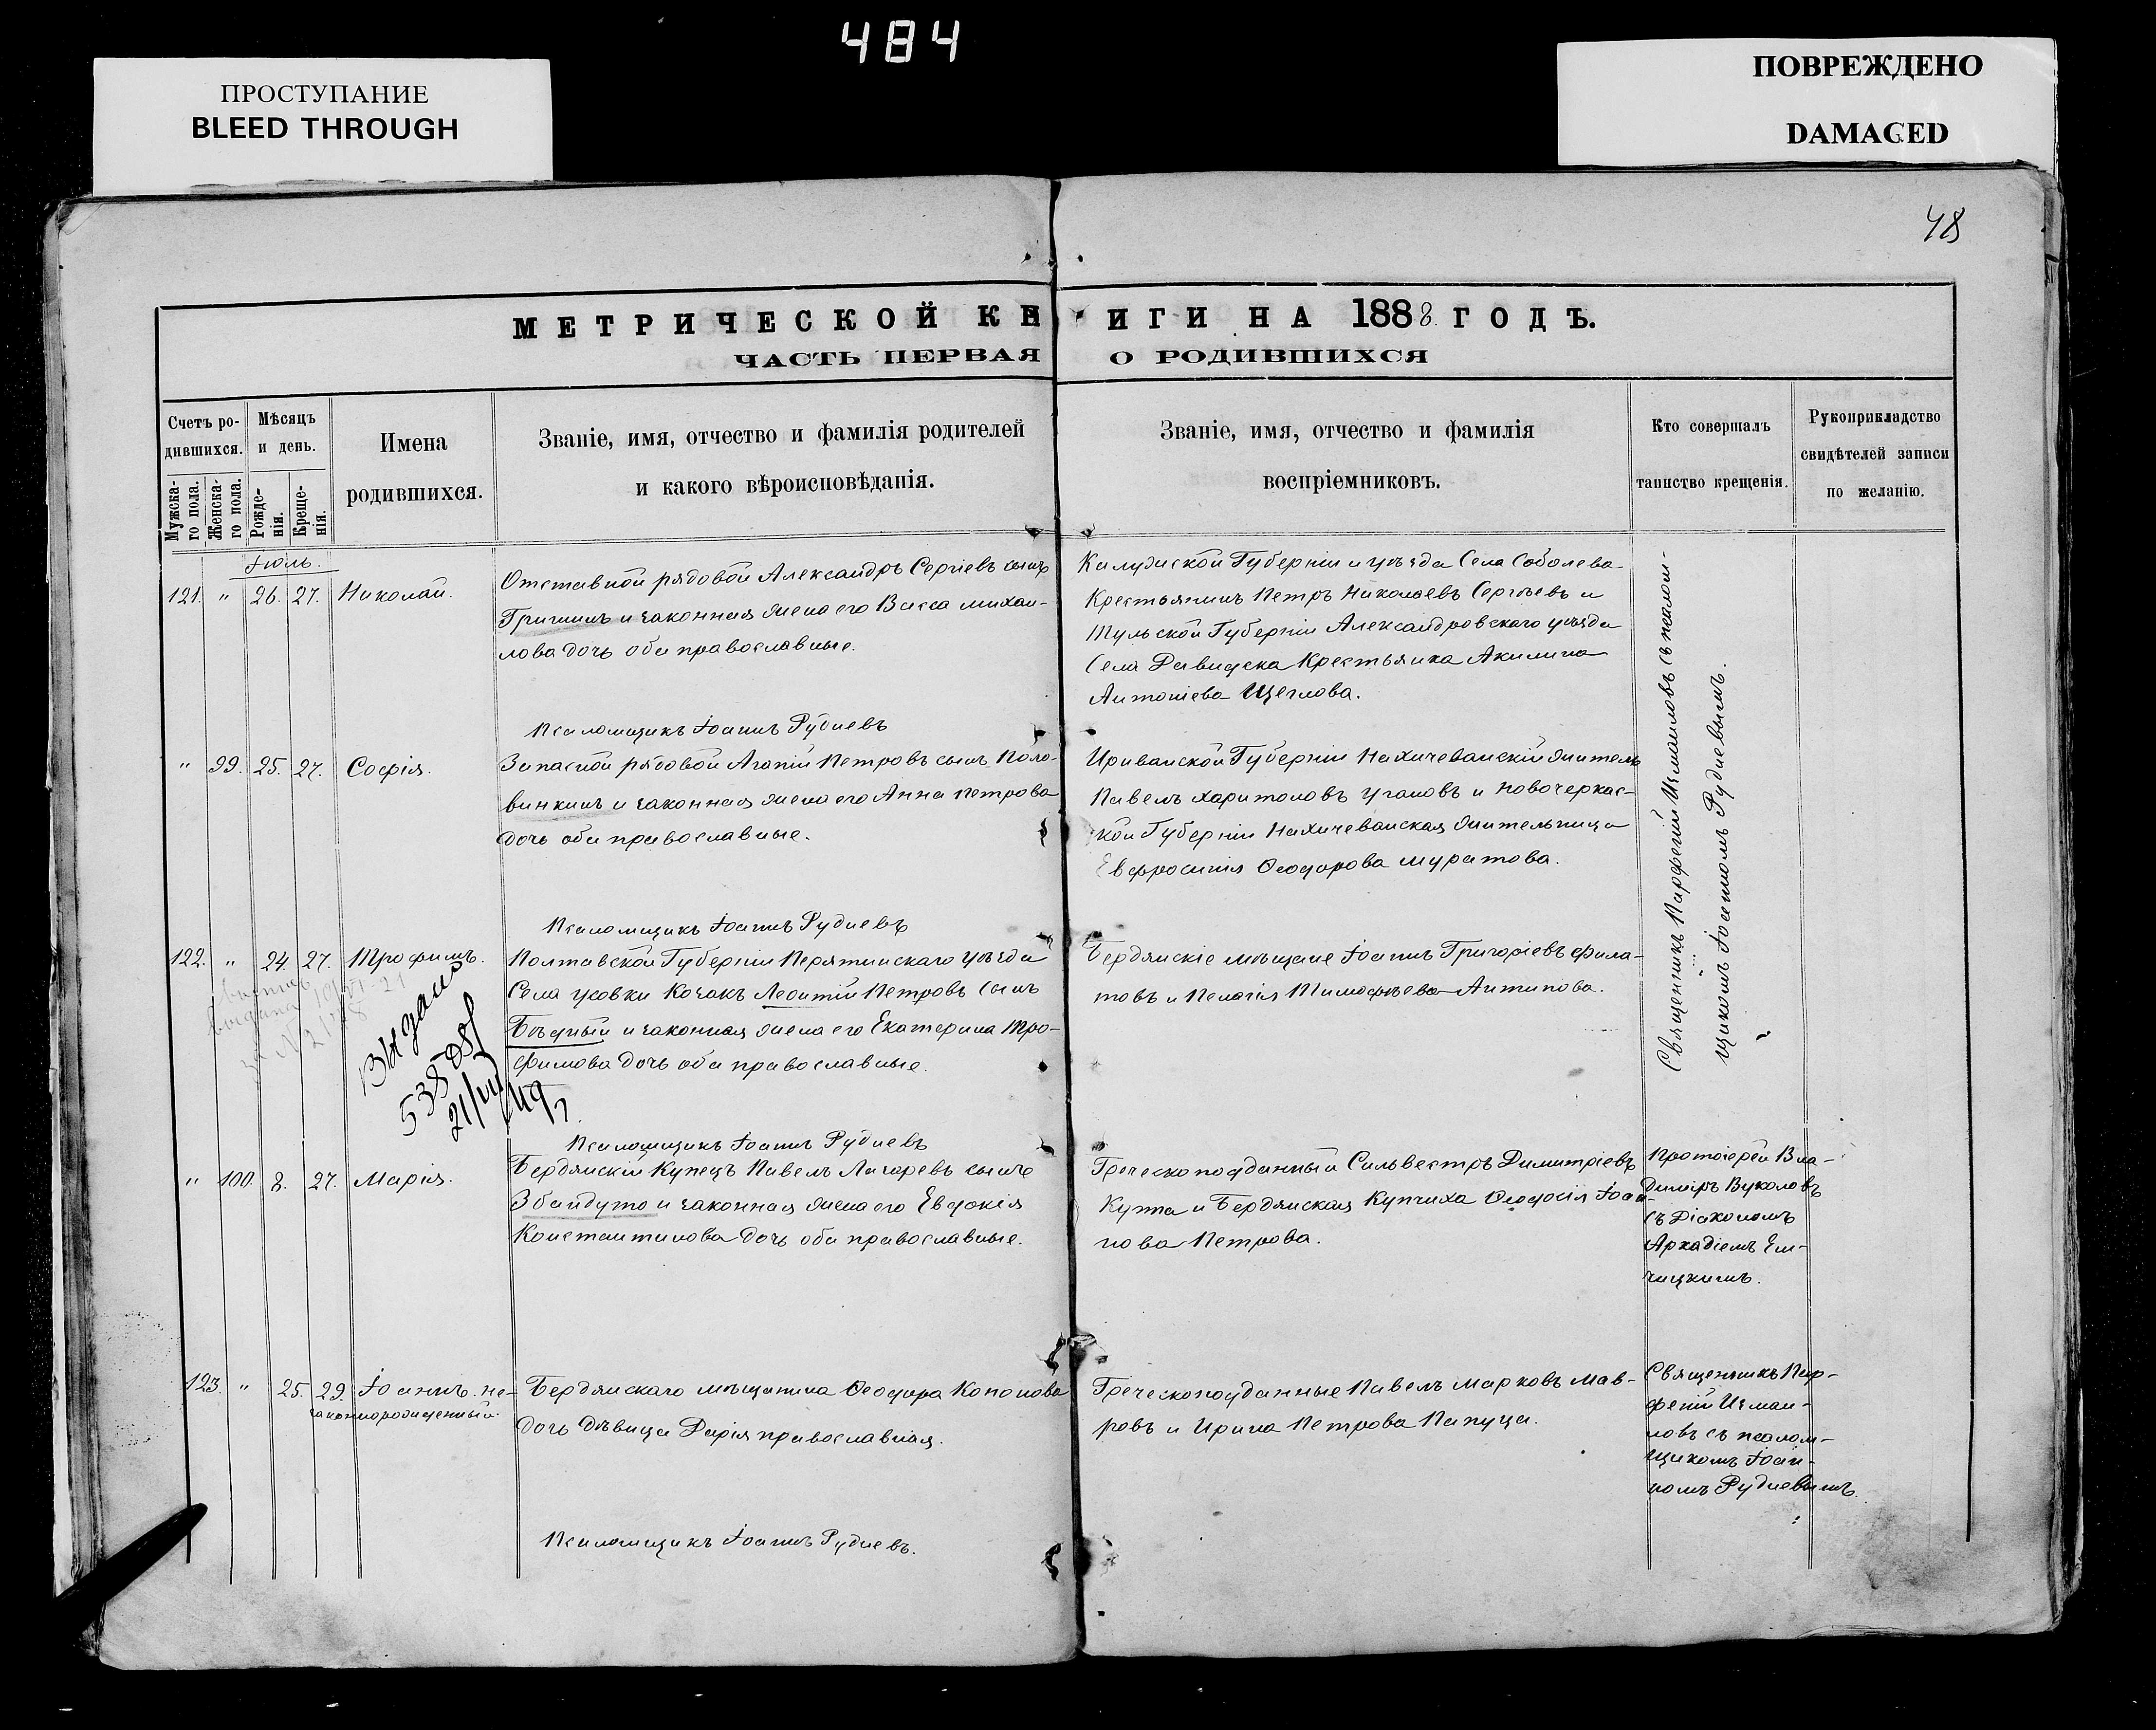 484
ПРОСТУПАНИЕ
BLEED THROUGH
ПОВРЕЖДЕНО
DAMAGED
48
МЕТРИЧЕСКОЙ КНИГИ НА 1888 ГОДЪ.
ЧАСТЬ ПЕРВАЯ О РОДИВШИХСЯ
Счетъ ро-
дившихся.
Мужска-
го пола.
Женска-
го пола.
Мѣсяцъ
и день.
Рожде-
нія.
Креще-
нія.
Имена
родившихся.
Званіе, имя, отчество и фамилія родителей
и какого вѣроисповѣданія.
Званіе, имя, отчество и фамилія
воспріемниковъ.
Кто совершалъ
таинство крещенія.
Рукоприкладство
свидѣтелей записи
по желанію.
Іюль.
121. " 26. 27. Николай.
Отставной рядовой Александръ Сергіевъ сынъ
Гришинъ и законная жена его Васса Михаи-
лова дочь оба православные.
Калужской Губерніи и уѣзда Села Соболева
Крестьянинъ Петръ Николаевъ Сергѣевъ и
Тульской Губерніи Александровскаго уѣзда
Села Крестьянка Акилина
Антоніева Щеглова.
Священникъ Парфеній Измаиловъ съ псалом-
щикомъ Іоанномъ Рудневымъ.
Псаломщикъ Іоаннъ Рудневъ
" 99. 25. 27. Софія.
Запасной рядовой Агапій Петровъ сынъ Поло-
винкинъ и законная жена его Анна Петрова
дочь оба православные.
Ириванской Губерніи Нахичеванскій житель
Павелъ Харитоновъ Угановъ и Новочеркас-
кой Губерніи Нахичеванская жительница
Евфросинія Ѳеодорова Муратова.
Псаломщикъ Іоаннъ Рудневъ
122. " 24. 27. Трофимъ.
Полтавской Губерніи Пирятинскаго уѣзда
Села Усовки Козакъ Леонтій Петровъ сынъ
Бѣдный и законная жена его Екатерина Тро-
фимова дочь оба православные.
Бердянскіе мѣщане Іоаннъ Григоріевъ Фила-
товъ и Пелагія Тимофѣева Антипова.
Выдано
21/VII 49
Псаломщикъ Іоаннъ Рудневъ
" 100. 8. 27. Марія.
Бердянскій Купецъ Павелъ Лазаревъ сынъ
Збандуто и законная жена его Евдокія
Константинова дочь оба православные.
Греческоподданный Сильвестръ Димитріевъ
Купа и Бердянская Купчиха Ѳеодосія Іоан-
нова Петрова.
Протоіерей Вла-
диміръ Вуколовъ
съ Діакономъ
Аркадіемъ Ел-
чицкимъ.
123. " 25. 29. Іоаннъ. не-
законнорожденный.
Бердянскаго мѣщанина Ѳеодора Кононова
дочь дѣвица Дарія православная.
Греческоподданные Павелъ Марковъ Мав-
ровъ и Ирина Петрова Папуца.
Священникъ Пар-
феній Измаи-
ловъ съ псалом-
щикомъ Іоан-
номъ Рудневымъ.
Псаломщикъ Іоаннъ Рудневъ.